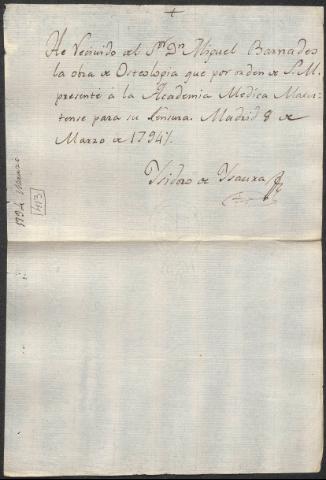 +
He Recivido del Sor. Dn. Miguel Barnades
la obra de Osteologia que por orden de S. M.
presenté á la Academia Medica Matri-
tense para su Censura. Madrid 8 de
Marzo de 1794.
Isidoro de Isaura
1794 Marzo
113